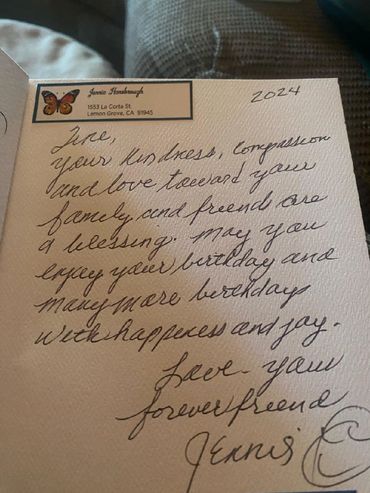 Jennis Stansbrough
1553 La Corta St.
Lemon Grove, CA 91945
2024
Tine,
your kindness, compassion
and love toward your
family and friends are
a blessing. May you
enjoy your birthday and
many more birthdays
with happiness and joy.
Love - your
forever friend
JENNIS